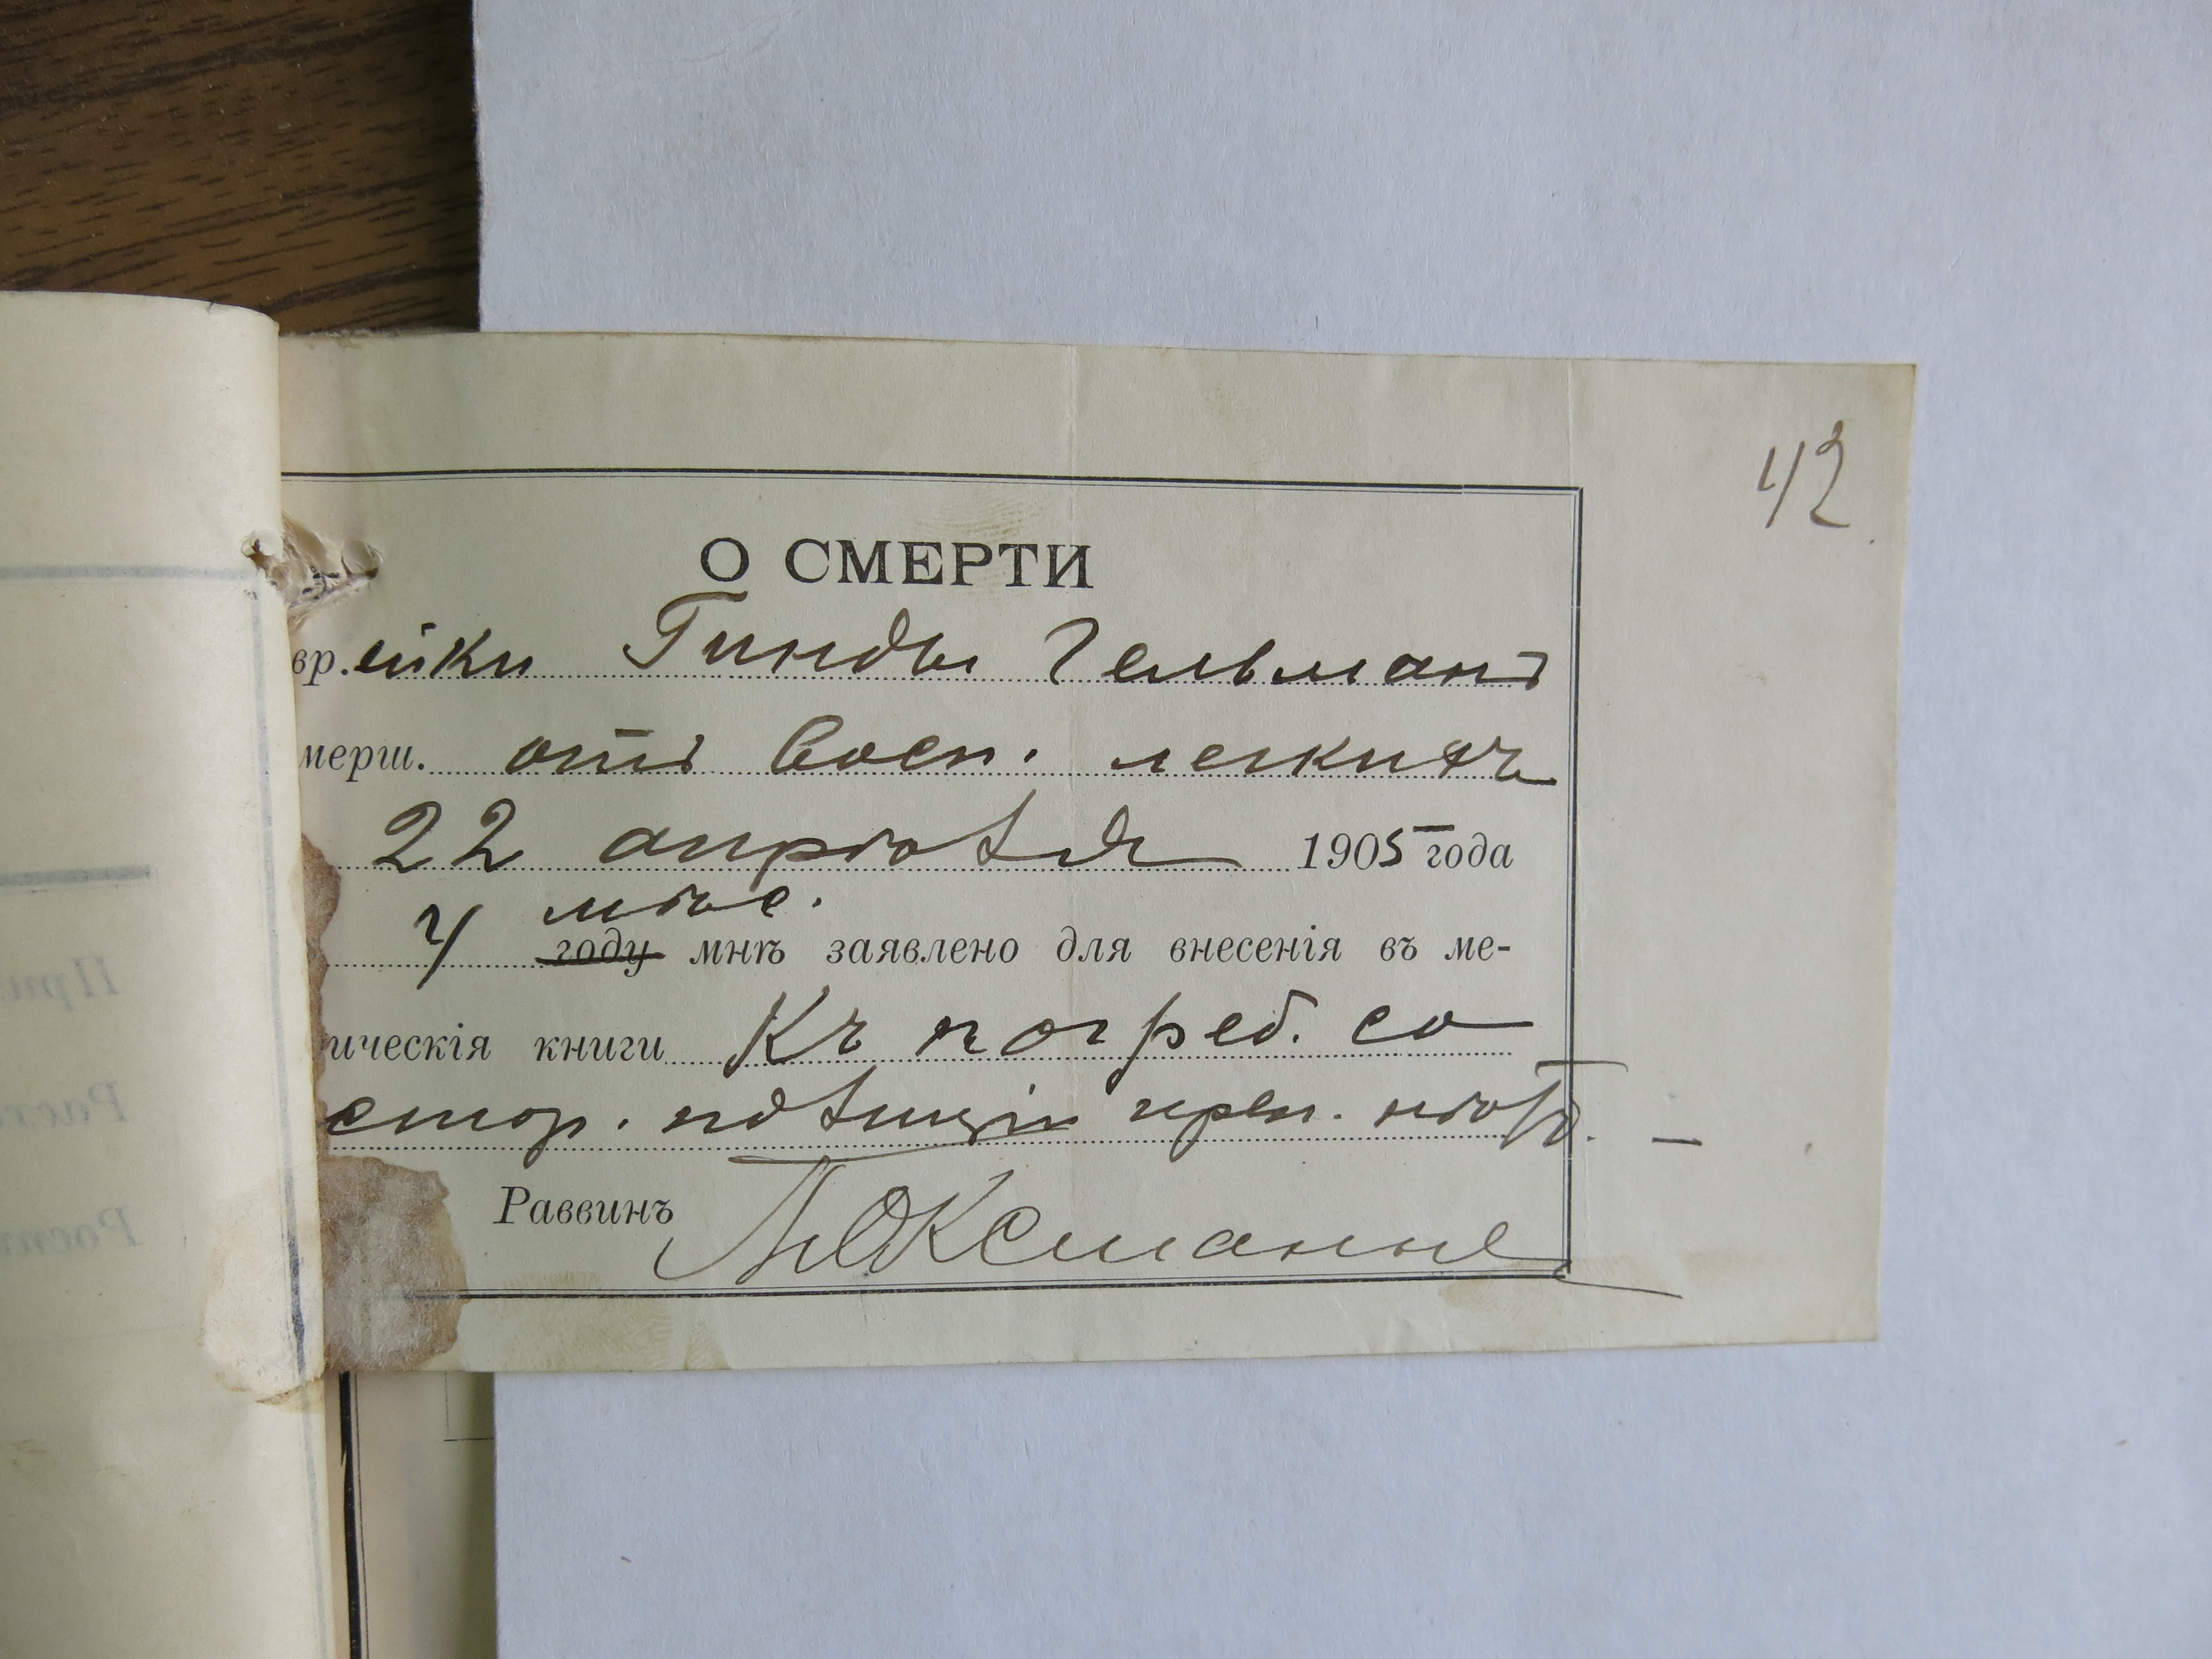 42
О СМЕРТИ
вр.ейки Гинды Гельманъ
мерш. отъ Восп. легкихъ
22 апрѣля 1905 года
4 мѣс.
году мнѣ заявлено для внесенія въ ме-
ическія книги Къ погреб. со
стор. преп. нѣтъ. —
Раввинъ Оксманъ